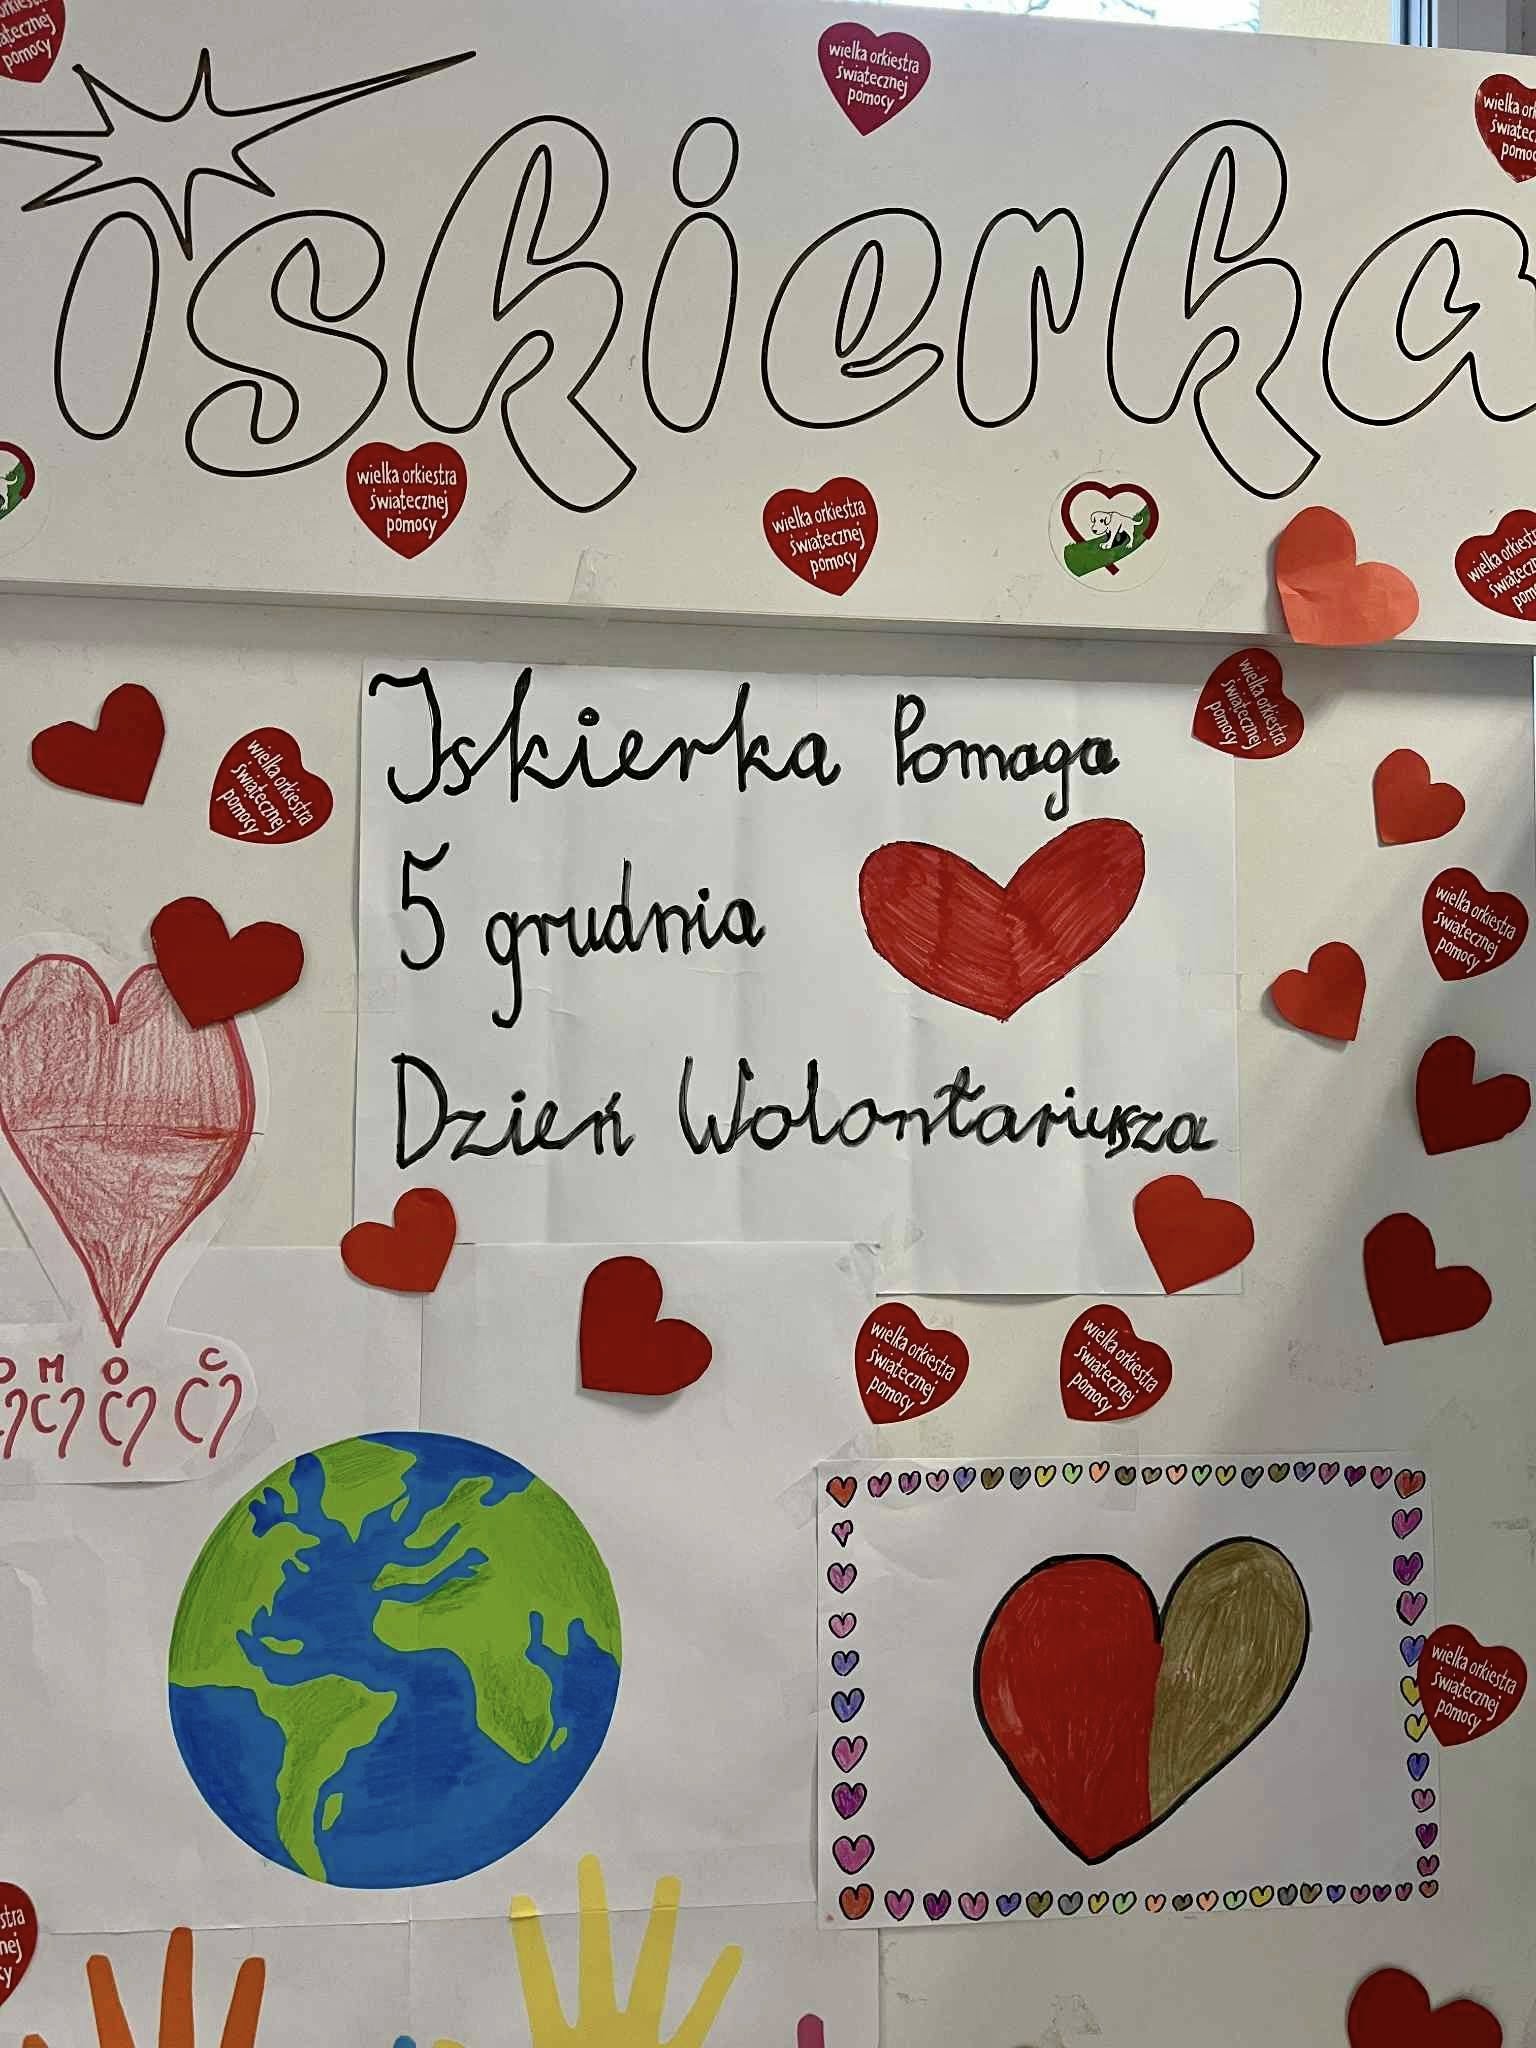 wielka orkiestra
świątecznej
pomocy
wielka orkiestra
świątecznej
pomocy
iskierka
wielka orkiestra
świątecznej
pomocy
wielka orkiestra
świątecznej
pomocy
Iskierka Pomaga
5 grudnia
Dzień Wolontariusza
wielka orkiestra
świątecznej
pomocy
wielka orkiestra
świątecznej
pomocy
wielka orkiestra
świątecznej
pomocy
O M O C
wielka orkiestra
świątecznej
pomocy
wielka orkiestra
świątecznej
pomocy
wielka orkiestra
świątecznej
pomocy